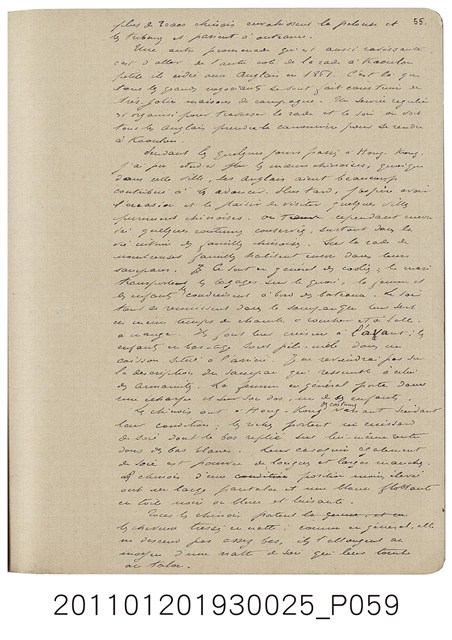 55.
plus de 2000 chinois envahissent la pelouse et
les tribunes et parient à outrance.
Une autre promenade qui est aussi ravissante
c'est d'aller de l'autre coté de la rade à Kaoulun
petite île cédée aux Anglais en 1861. C'est là que
tous les grands négociants se sont fait construire de
très jolies maisons de campagne. Un service régulier
est organisé pour traverser la rade et le soir on voit
tous les Anglais prendre la canonnière pour se rendre
à Kaoulun.
Pendant les quelques jours passés à Hong-Kong
j'ai pu étudier les mœurs chinoises, quoique
dans cette ville, les Anglais aient beaucoup
contribué à les adoucir. Plus tard, j'espère avoir
l'occasion et le plaisir de visiter quelques villes
purement chinoises. On cependant encore
ici quelques coutumes conservées, surtout dans la
vie intime des familles chinoises. Sur la rade de
nombreuses familles habitent encore dans leurs
sampans. Ce sont en général des coolies; le mari
transportant les bagages sur les quais, la femme et
les enfants les conduisent à bord des bateaux. Le soir
tous se réunissent dans le sampang qui leur sert
en même temps de chambre à coucher et de salle
à manger. Ils font leur cuisine à l'avant; les
enfants en bas âge sont pêle-mêle dans un
caisson situé à l'arrière. Je ne reviendrai pas sur
la description du sampan qui ressemble à celui
des Annamites. La femme en général porte dans
une écharpe et sur son dos, un de ses enfants.
Les chinois ont à Hong-Kong des costumes variant suivant
leur condition; les riches portent un caisson
de soie dont le bas replié sur lui-même entre
dans des bas blancs. Leur casaquin également
de soie est pourvu de longues et larges manches.
Le chinois d'une condition position moins élevée
ont un large pantalon et une blouse flottante
en toile noire ou bleue et luisante.
Tous les chinois portent la queue, et on
les cheveux tressés en natte; comme en général, elle
ne descend pas assez bas, ils l'allongent au
moyen d'une natte de soie qui leur tombe
au talon.
201101201930025_P059